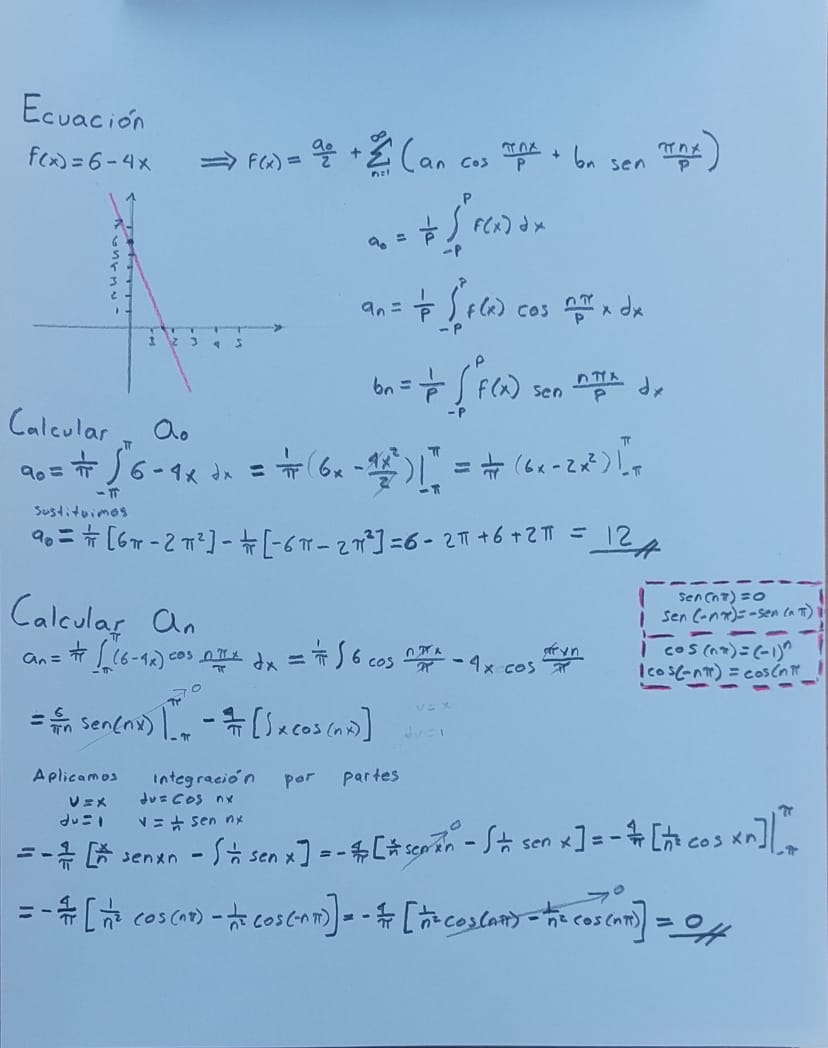 Ecuación
f(x) = 6 - 4x ⟹ f(x) = a₀/2 + ∑_{n=1}^{∞} (an cos πnx/P + bn sen πnx/P)
a₀ = 1/P ∫_{-P}^{P} f(x) dx
an = 1/P ∫_{-P}^{P} f(x) cos nπ/P x dx
bn = 1/P ∫_{-P}^{P} f(x) sen nπx/P dx
7
6
5
4
3
2
1
1 2 3 4 5
Calcular a₀
a₀ = 1/π ∫_{-π}^{π} 6 - 4x dx = 1/π (6x - 4x²/2)|_{-π}^{π} = 1/π (6x - 2x²)|_{-π}^{π}
sustituimos
a₀ = 1/π [6π - 2π²] - 1/π [-6π - 2π²] = 6 - 2π + 6 + 2π = 12
Calcular an
sen(nπ) = 0
sen(-nπ) = -sen(nπ)
cos(nπ) = (-1)ⁿ
cos(-nπ) = cos(nπ
an = 1/π ∫_{-π}^{π} (6-4x) cos nπx/π dx = 1/π ∫ 6 cos nπx/π - 4x cos πxn/π
= 6/πn sen(nx)|_{-π}^{π} → 0 - 4/π [∫x cos(nx)]
v = x
dv = 1
Aplicamos integración por partes
U = x dv = cos nx
du = 1 v = 1/n sen nx
= -4/π [x/n senxn - ∫ 1/n sen x] = -4/π [x/n senxn → 0 - ∫ 1/n sen x] = -4/π [1/n² cos xn]|_{-π}^{π}
= -4/π [1/n² cos(nπ) - 1/n² cos(-nπ)] = -4/π [1/n² cos(nπ) - 1/n² cos(nπ)] → 0 = 0